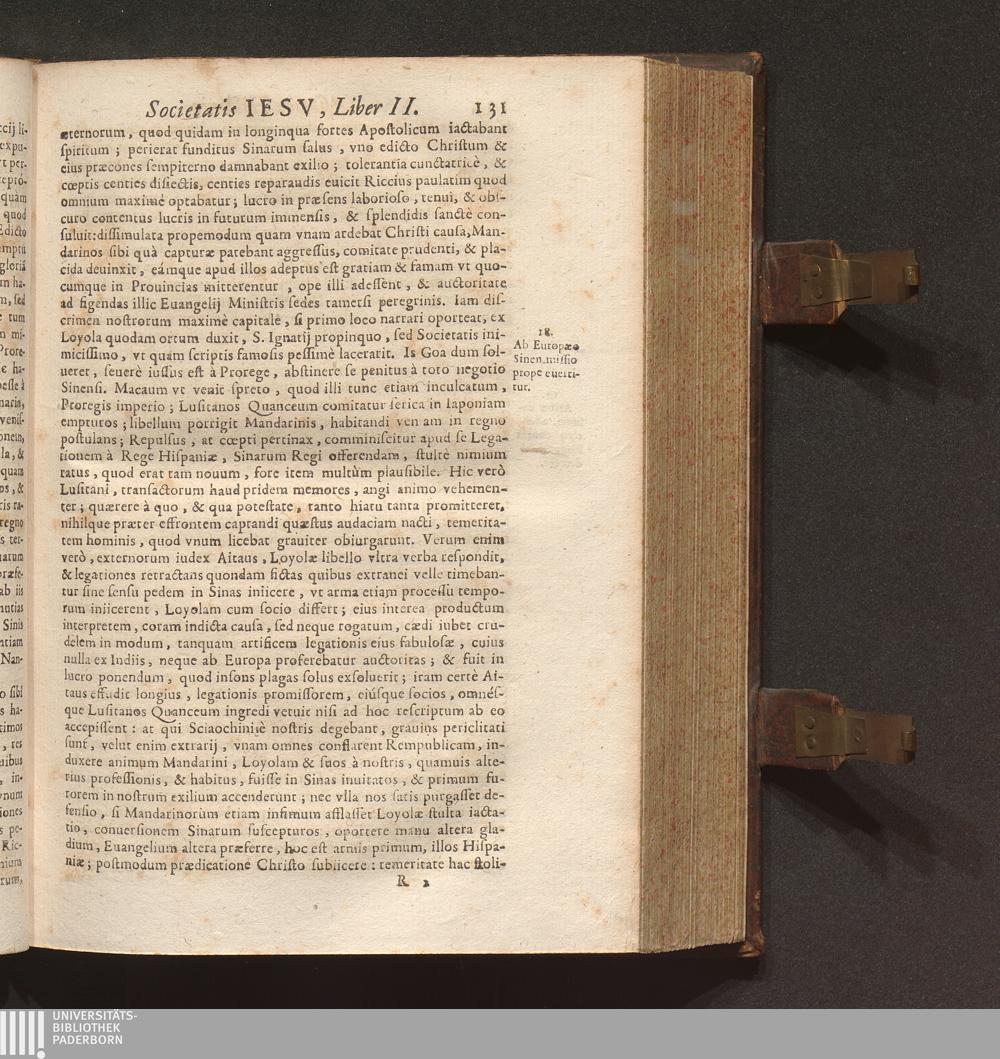 Societatis IESV, Liber II. 131
æternorum, quod quidam in longinqua fortes Apoſtolicum iactabant
ſpiritum; perierat funditus Sinarum ſalus, vno edicto Chriſtum &
eius præcones ſempiterno damnabant exilio; tolerantia cunctatricè, &
cœptis centies diſiectis, centies reparaudis euicit Riccius paulatim quod
omnium maximè optabatur; lucro in præſens laborioſo, tenui, & obſ-
curo contentus lucris in futurum immenſis, & ſplendidis ſanctè con-
ſuluit: diſſimulata propemodum quam vnam ardebat Chriſti cauſa, Man-
darinos ſibi quà capturæ patebant aggreſſus, comitate prudenti, & pla-
cida deuinxit, eámque apud illos adeptus eſt gratiam & famam vt quo-
cumque in Prouincias mitterentur, ope illi adeſſent, & auctoritate
ad figendas illic Euangelij Miniſtris ſedes tametſi peregrinis. Iam diſ-
crimen noſtrorum maximè capitale, ſi primo loco narrari oporteat, ex
Loyola quodam ortum duxit, S. Ignatij propinquo, ſed Societatis ini-
miciſſimo, vt quàm ſcriptis famoſis peſſimè lacerarit. Is Goa dum ſol-
ueret, ſeuerè iuſſus eſt à Prorege, abſtinere ſe penitus à toto negotio
Sinenſi. Macaum vt venit ſpreto, quod illi tunc etiam inculcatum,
Proregis imperio; Luſitanos Quanceum comitatur ſerica in Iaponiam
empturos; libellum porrigit Mandarinis, habitandi veniam in regno
poſtulans; Repulſus, at cœpti pertinax, comminiſcitur apud ſe Lega-
tionem à Rege Hiſpaniæ, Sinarum Regi offerendam, ſtultè nimium
ratus, quod erat tam nouum, fore item multùm plauſibile. Hic verò
Luſitani, tranſactorum haud pridem memores, angi animo vehemen-
ter; quærere à quo, & qua poteſtate, tanto hiatu tanta promitteret,
nihilque præter effrontem captandi quæſtus audaciam nacti, temerita-
tem hominis, quod vnum licebat grauiter obiurgarunt. Verum enim
verò, externorum iudex Aitaus, Loyolæ libello vltra verba reſpondit,
& legationes retractans quondam fictas quibus extranei velle timeban-
tur ſine ſenſu pedem in Sinas iniicere, vt arma etiam proceſſu tempo-
rum iniicerent, Loyolam cum ſocio differt; eius interea productum
interpretem, coram indicta cauſa, ſed neque rogatum, cædi iubet cru-
delem in modum, tanquam artificem legationis eius fabuloſæ, cuius
nulla ex Indiis, neque ab Europa proferebatur auctoritas; & fuit in
lucro ponendum, quod inſons plagas ſolus exſoluerit; iram certè Ai-
taus effudit longius, legationis promiſſorem, eiúſque ſocios, omnéſ-
que Luſitanos Quanceum ingredi vetuit niſi ad hoc reſcriptum ab eo
accepiſſent: at qui Sciaochinijè noſtris degebant, grauius periclitati
ſunt, velut enim extrarij, vnam omnes conflarent Rempublicam, in-
duxere animum Mandarini, Loyolam & ſuos à noſtris, quamuis alte-
rius profeſſionis, & habitus, fuiſſe in Sinas inuitatos, & primum fu-
rorem in noſtrum exilium accenderunt; nec vlla nos ſatis purgaſſet de-
fenſio, ſi Mandarinorum etiam infimum afflaſſet Loyolæ ſtulta iacta-
tio, conuerſionem Sinarum ſuſcepturos, oportere manu altera gla-
dium, Euangelium altera præferre, hoc eſt armis primum, illos Hiſpa-
niæ; poſtmodum prædicatione Chriſto ſubiicere: temeritate hac ſtoli-
R 2
18.
Ab Europæo
Sinen. miſſio
prope euerti-
tur.
UNIVERSITÄTS-
BIBLIOTHEK
PADERBORN